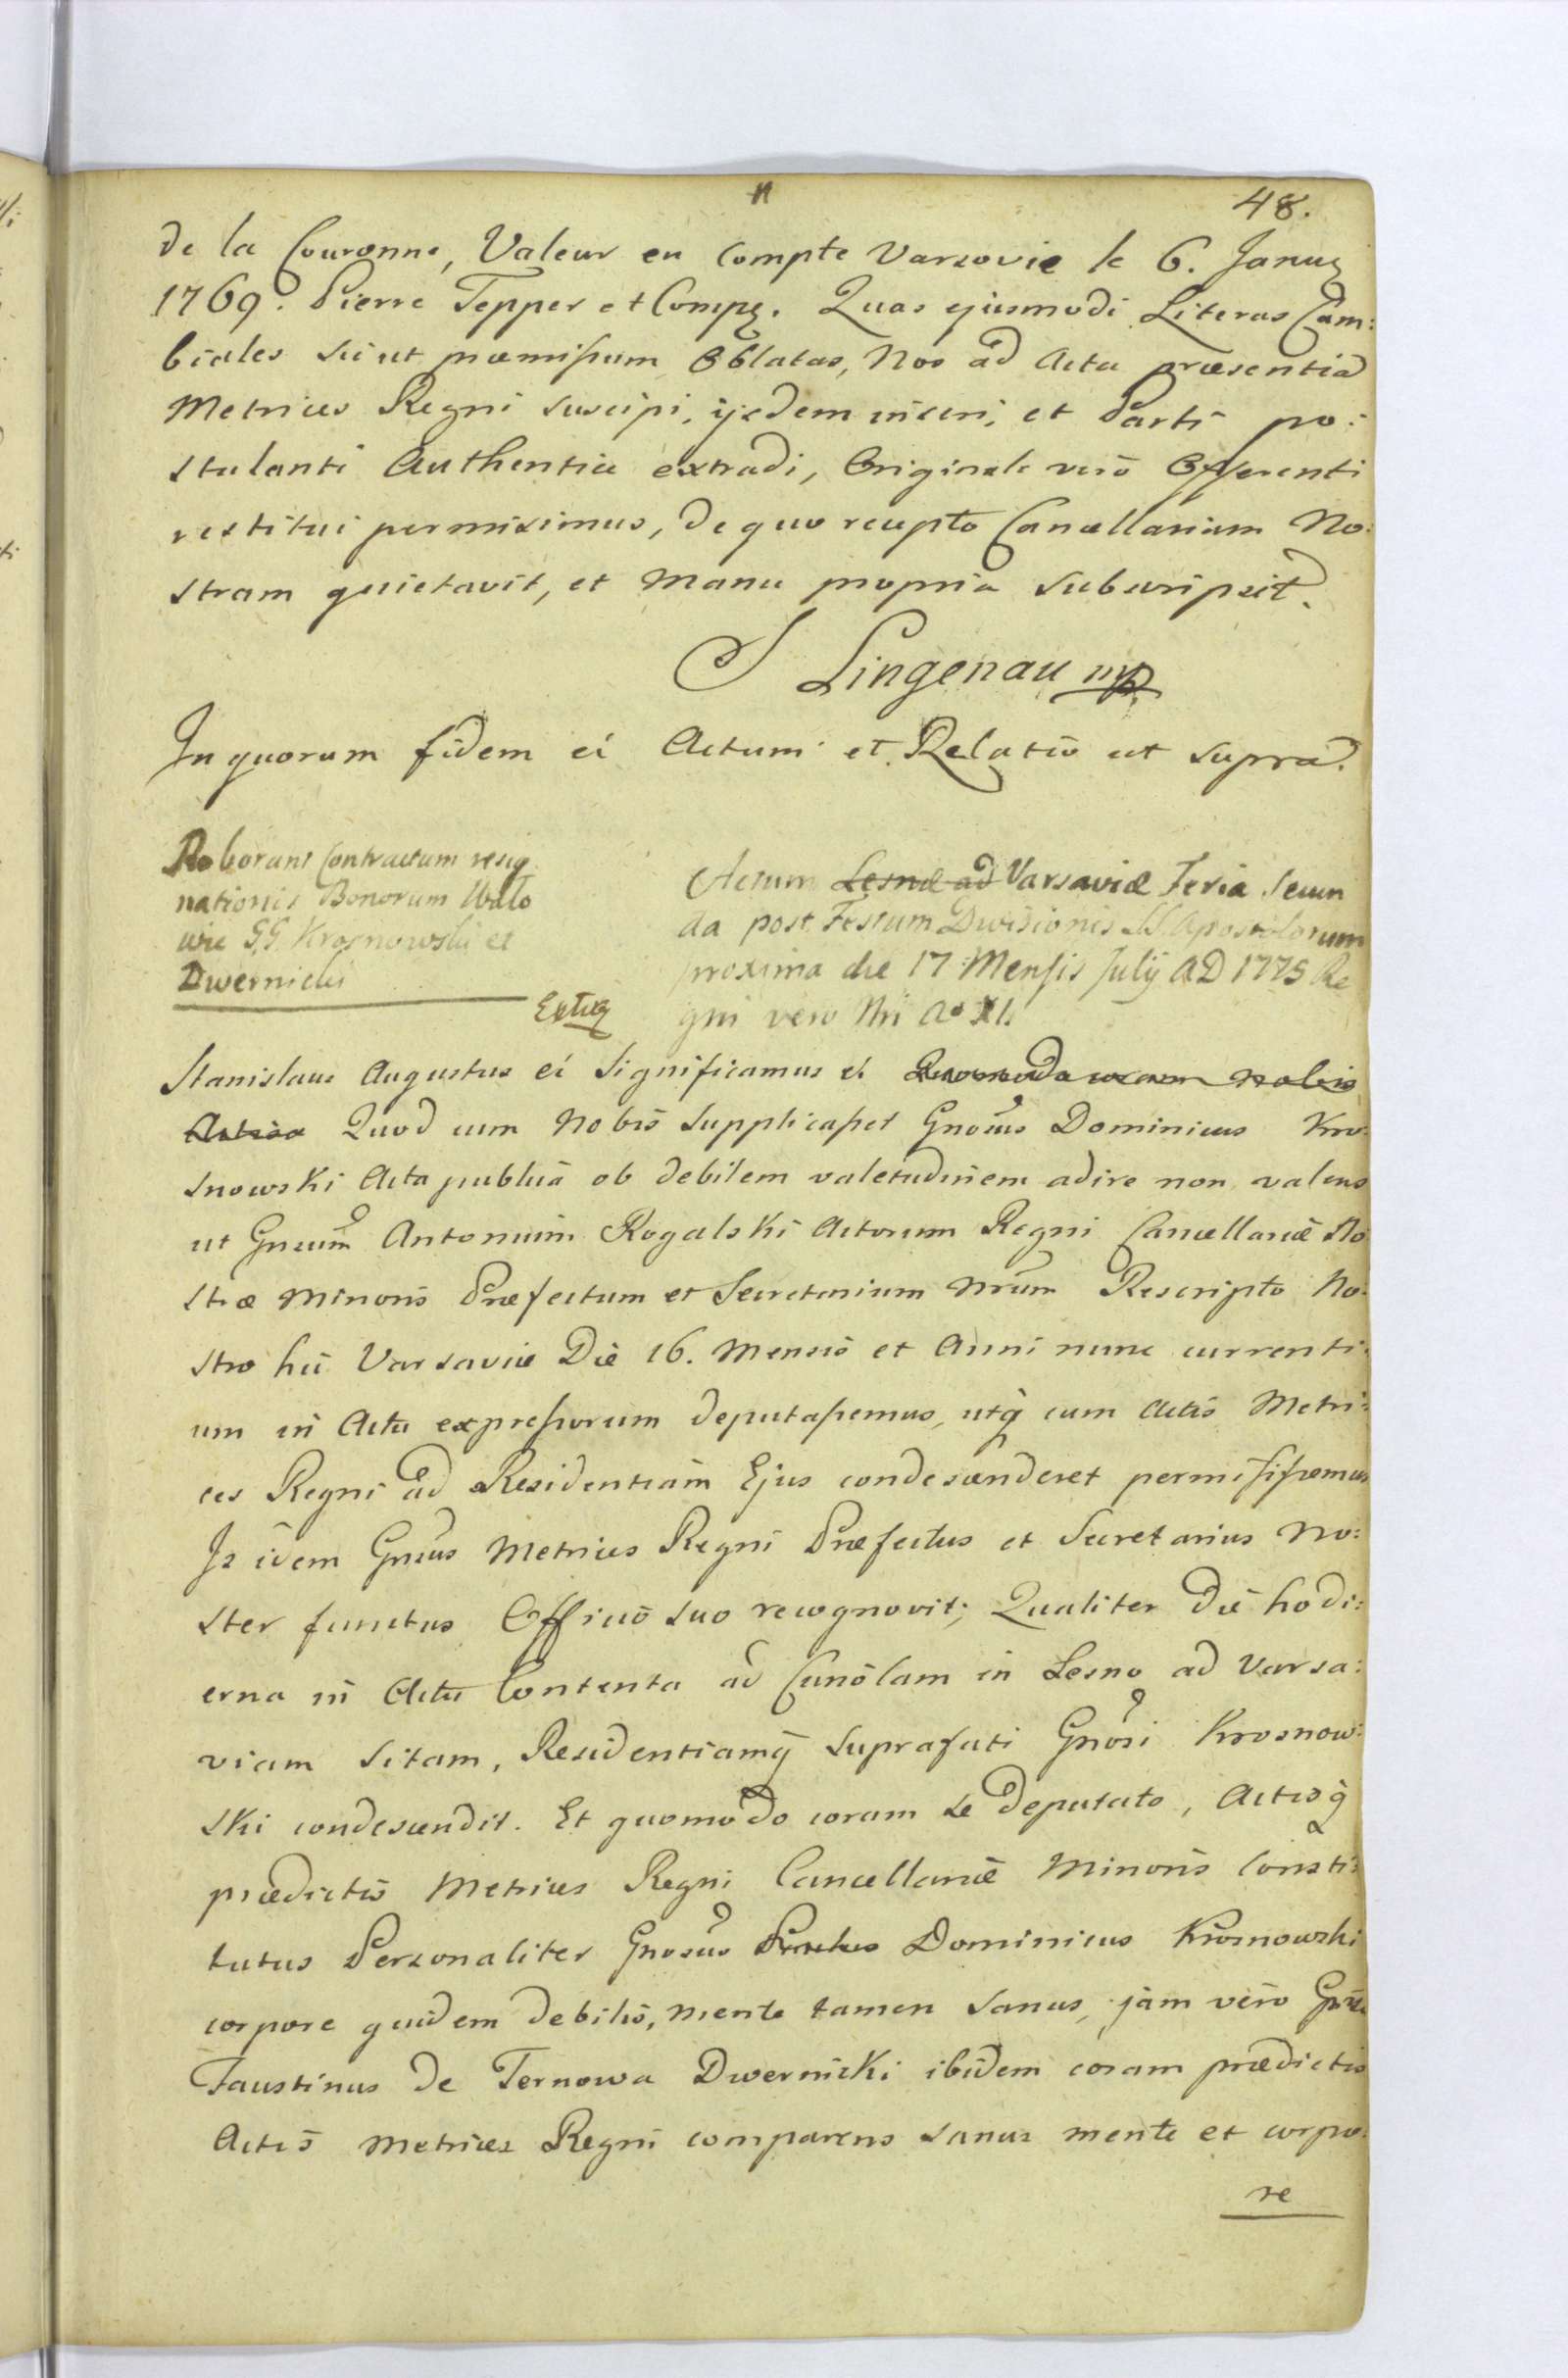 48.
de la Couronne, Valeur en Compte Varsovie le 6. Janug
1769. Pierre Tepper et Compg. Quas ejusmodi Literas Cam:
biales sicut præmissum Oblatas, Nos ad Acta præsentia
Metrices Regni suscipi, ijsdem inseri, et Parti po:
stulanti Authentice extradi, Originale verō Offerenti
restitui permisimus, de quo recepto Cancellariam No:
stram quietavit, et manu propria subscripsit.
J Lingenau mp.
In quorum fidem eí Actum et Relatio ut supra.
Roborant Contractum resig
nationis Bonorum
G.G. Krosnowski et
Dwernicki
Extrg
Actum Lesnæ ad Varsaviæ Feria secun
da post Festum Divisionis S.S. Apostolorum
proxima die 17 Mensis Julij AD 1775 Re
gni vero Nri Ao XI.
Stanislaus Augustus eí Significamus eí Quomodo coram nobis
Actisq Quod cum Nobis supplicasset Gnosus Dominicus Kro:
snowski Acta publica ob debilem valetudinem adire non valens
ut Gnsum Antonium Rogalski Actorum Regni Cancellariæ No
stræ Minoris Præfectum et Secretarium Nrum Rescripto No:
stro hic Varsaviæ Die 16. Mensis et Anni nunc currenti:
um in Actu expressorum deputassemus, utq cum Actis Metri:
ces Regni ad Residentiam Ejus condescenderet permisissemus
Is idem Gnsus Metrices Regni Præfectus et Secretarius No:
ster functus Officio suo recognovit; Qualiter Die hodi:
erna in Actu Contenta ad Curiolam in Lesno ad Varsa:
viam sitam, Residentiamq suprafati Gnosi Krosnow:
ski condescendit. Et quomodo coram se Deputato, Actisq
prædictis Metrices Regni Cancellariæ Minoris Consti:
tutus Personaliter Gnosus Dominicus Krosnowski
corpore quidem debilis, mente tamen sanus, jam vero Gnsus
Faustinus de Ternowa Dwernicki ibidem coram prædictis
Actis Metrices Regni comparens sanus mente et corpo:
re